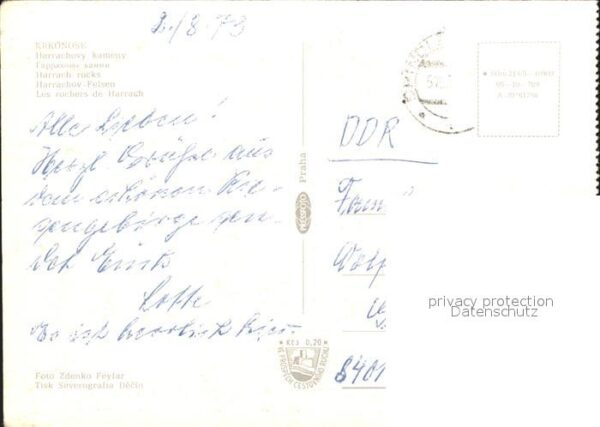 2./8.73
KRKONOŠE
Harrachovy kameny
Гарраховы камни
Harrach-rocks
Harrachov-Felsen
Los rochers de Harrach
Alle Lieben!
Herzl. Grüße aus
dem schönen Rie-
sengebirge sen-
det Euch
Lotte
Es ist herrlich hier.
Foto Zdenko Feyfar
Tisk Severografia Děčín
PRESSFOTO Praha
Kčs 0,20
DDR
Fam
Wolf
8401
privacy protection
Datenschutz